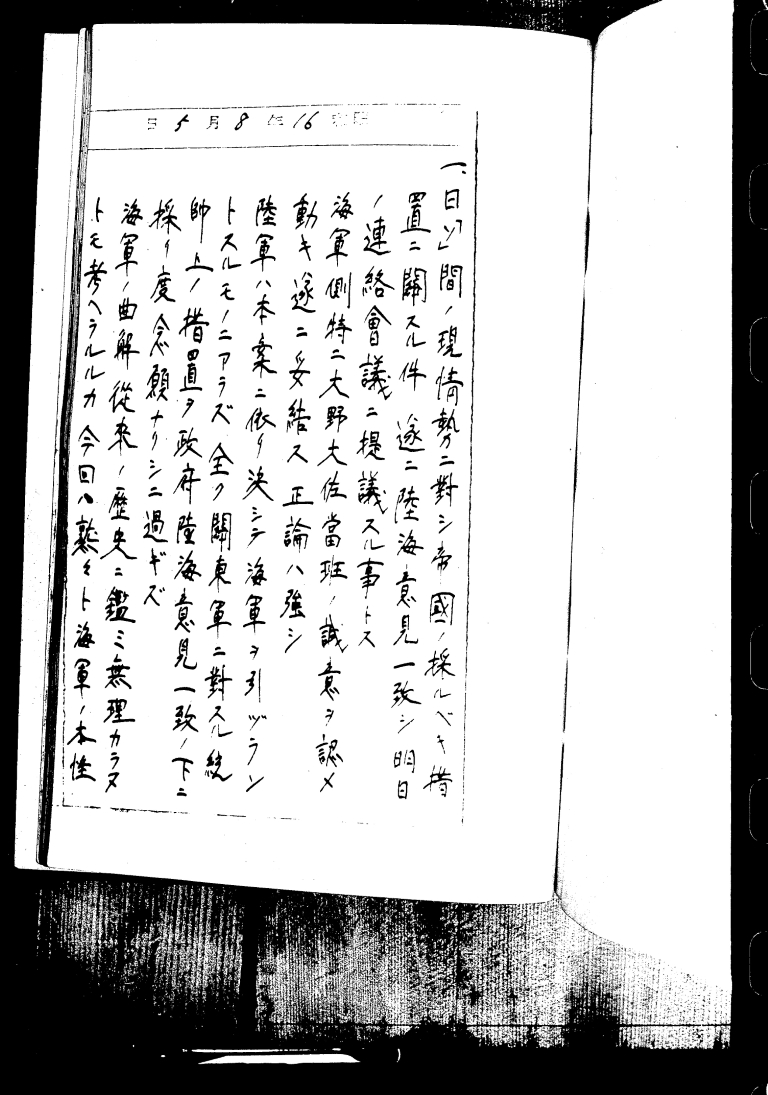 昭和16年8月5日
一、日「ソ」間ノ現情勢ニ對シ帝國ノ採ルベキ措
置ニ關スル件 遂ニ陸海意見一致シ明日
ノ連絡會議ニ提議スル事トス
海軍側特ニ大野大佐當班ノ誠意ヲ認メ
動キ遂ニ妥結ス 正論ハ強シ
陸軍ハ本案ニ依リ決シテ海軍ヲ引ヅラン
トスルモノニアラズ 全ク關東軍ニ對スル統
帥上ノ措置ヲ政府陸海意見一致ノ下ニ
採リ度念願ナリシニ過ギズ
海軍ノ曲解從來ノ歴史ニ鑑ミ無理カラヌ
トモ考ヘラルルカ 今回ハ熟々ト海軍ノ本性